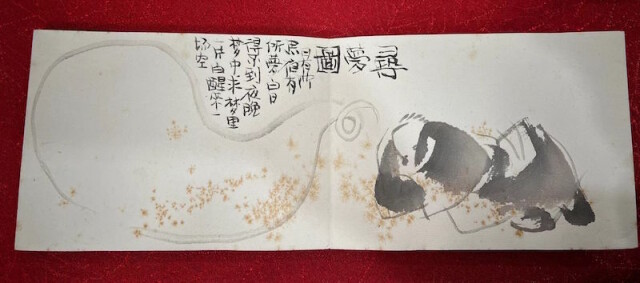 尋夢圖
日有所
思夜有
所梦白日
得不到夜晚
梦中求梦里
一片白醒来一
场空